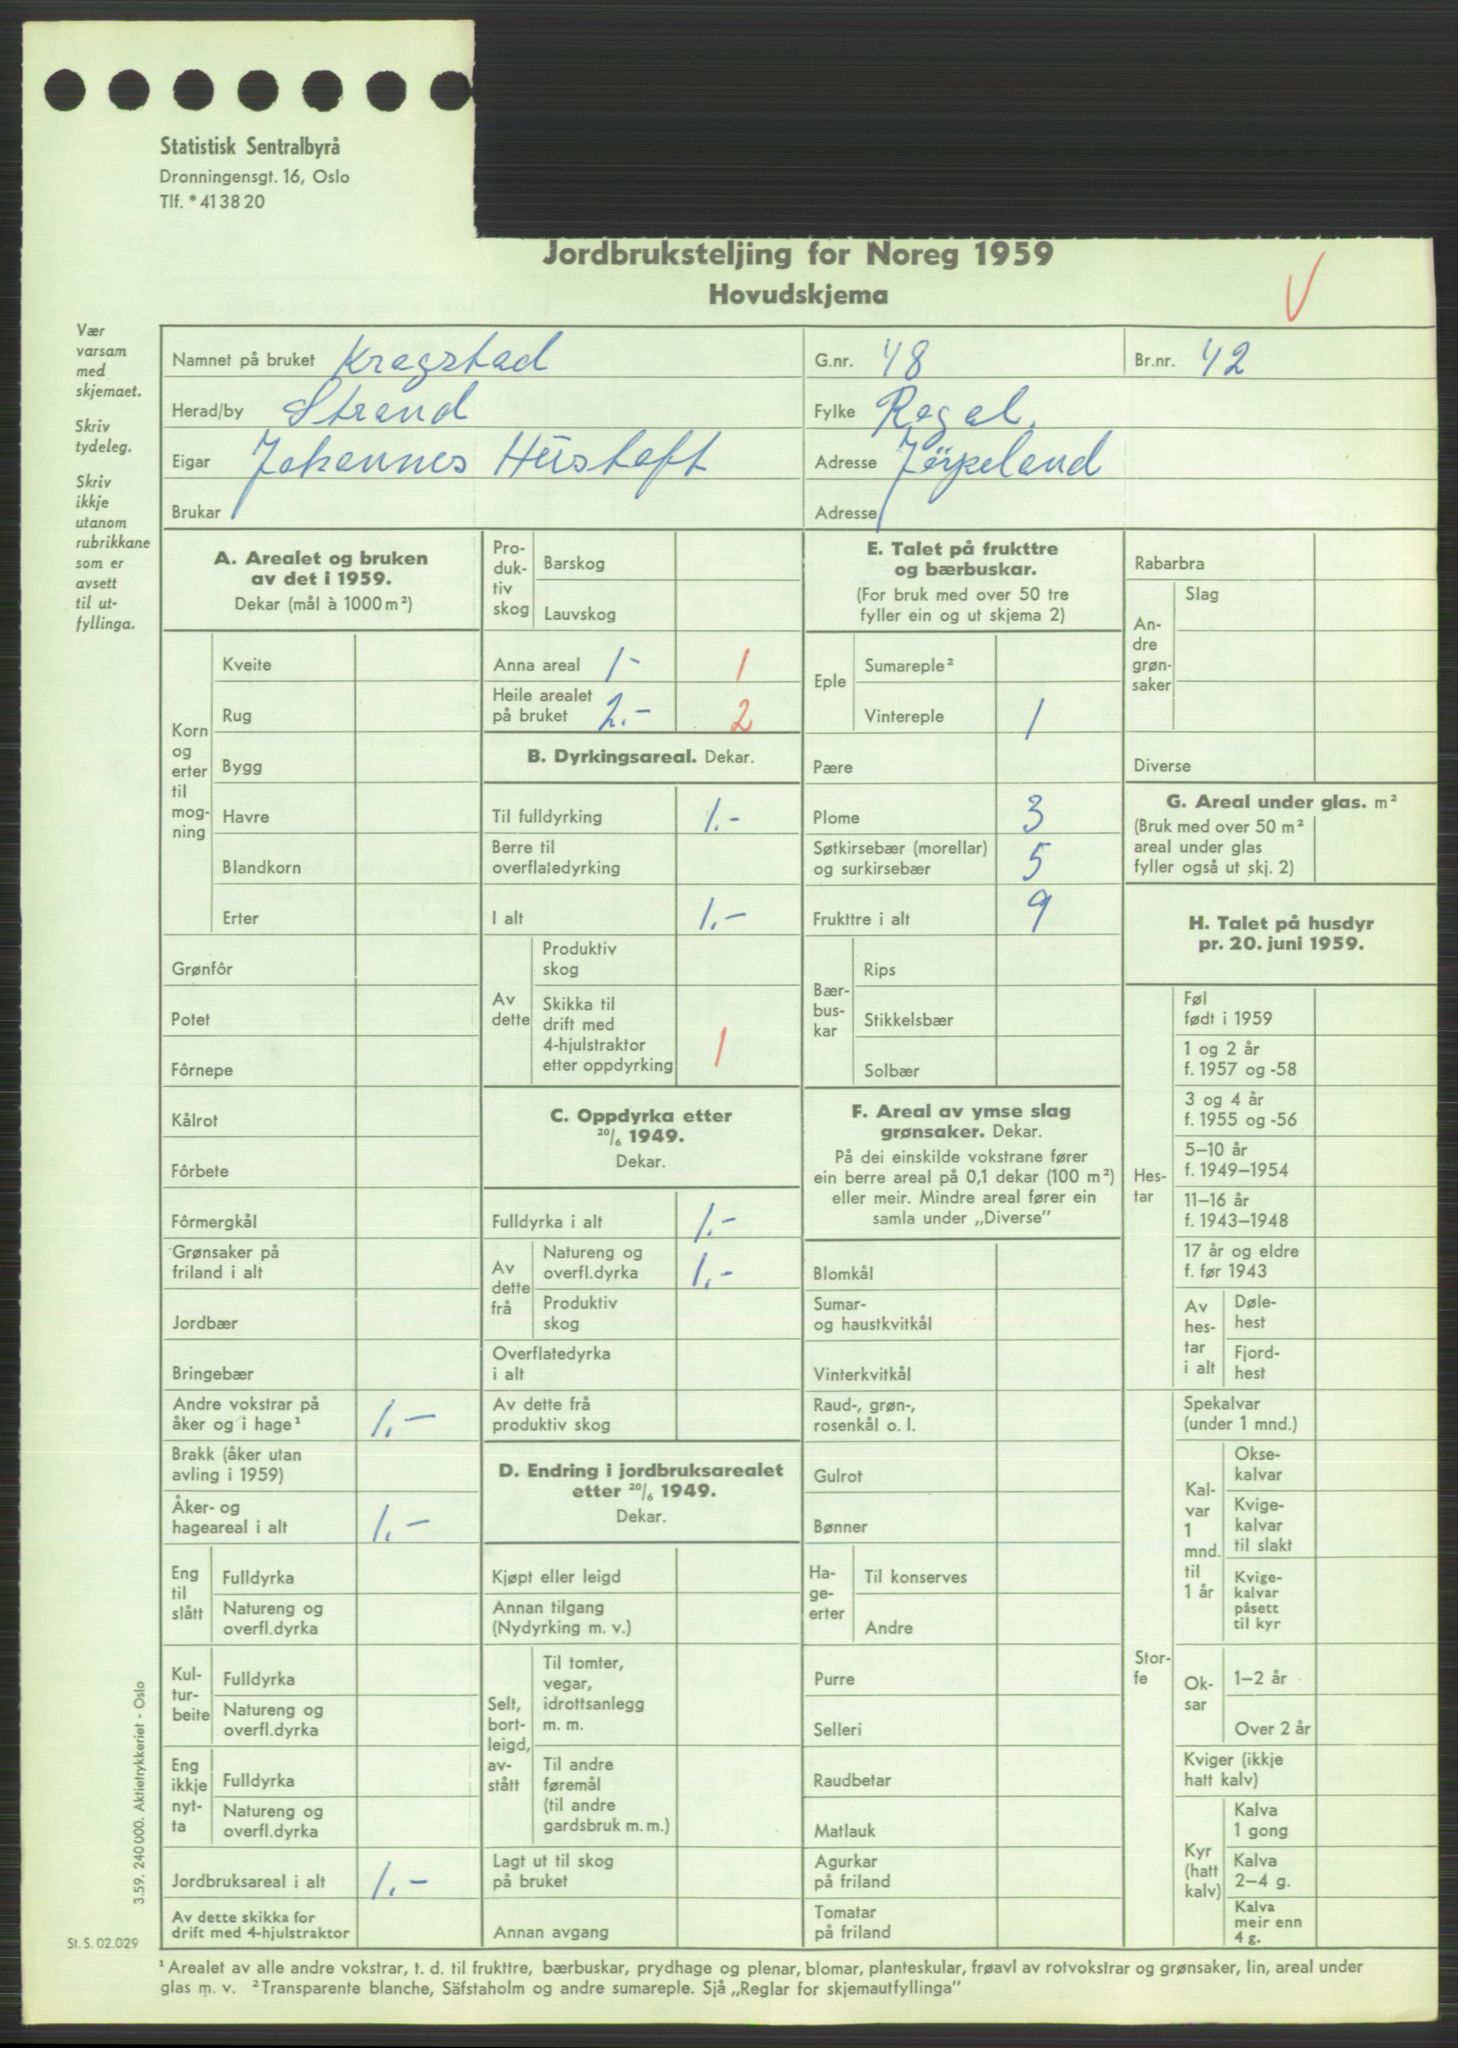 Statistisk Sentralbyrå
Dronningensgt. 16, Oslo
Tlf. * 41 38 20
Jordbruksteljing for Noreg 1959
Hovudskjema
Vær
varsam
med
skjemaet.
Skriv
tydeleg.
Skriv
ikkje
utanom
rubrikkane
som er
avsett
til ut-
fyllinga.
Namnet på bruket Kragstad G.nr. 48 Br.nr. 42
Herad/by Strand Fylke Rogal.
Eigar Johannes Hustoft Adresse Jørpeland
Brukar Adresse
A. Arealet og bruken
av det i 1959.
Dekar (mål à 1000 m²)
Korn
og
erter
til
mog-
ning
Kveite
Rug
Bygg
Havre
Blandkorn
Erter
Grønfôr
Potet
Fôrnepe
Kålrot
Fôrbete
Fôrmergkål
Grønsaker på
friland i alt
Jordbær
Bringebær
Andre vokstrar på
åker og i hage¹ 1.-
Brakk (åker utan
avling i 1959)
Åker- og
hageareal i alt 1.-
Eng
til
slått
Fulldyrka
Natureng og
overfl.dyrka
Kul-
tur-
beite
Fulldyrka
Natureng og
overfl.dyrka
Eng
ikkje
nyt-
ta
Fulldyrka
Natureng og
overfl.dyrka
Jordbruksareal i alt 1.-
Av dette skikka for
drift med 4-hjulstraktor
Pro-
duk-
tiv
skog
Barskog
Lauvskog
Anna areal 1- 1
Heile arealet
på bruket 2.- 2
B. Dyrkingsareal. Dekar.
Til fulldyrking 1.-
Berre til
overflatedyrking
I alt 1.-
Av
dette
Produktiv
skog
Skikka til
drift med
4-hjulstraktor
etter oppdyrking 1
C. Oppdyrka etter
20/6 1949.
Dekar.
Fulldyrka i alt 1.-
Av
dette
frå
Natureng og
overfl.dyrka 1.-
Produktiv
skog
Overflatedyrka
i alt
Av dette frå
produktiv skog
D. Endring i jordbruksarealet
etter 20/6 1949.
Dekar.
Kjøpt eller leigd
Annan tilgang
(Nydyrking m. v.)
Selt,
bort-
leigd,
av-
stått
Til tomter,
vegar,
idrottsanlegg
m. m.
Til andre
føremål
(til andre
gardsbruk m. m.)
Lagt ut til skog
på bruket
Annan avgang
E. Talet på frukttre
og bærbuskar.
(For bruk med over 50 tre
fyller ein og ut skjema 2)
Eple
Sumareple²
Vintereple 1
Pære
Plome 3
Søtkirsebær (morellar)
og surkirsebær 5
Frukttre i alt 9
Bær-
bus-
kar
Rips
Stikkelsbær
Solbær
F. Areal av ymse slag
grønsaker. Dekar.
På dei einskilde vokstrane fører
ein berre areal på 0,1 dekar (100 m²)
eller meir. Mindre areal fører ein
samla under „Diverse”
Blomkål
Sumar-
og haustkvitkål
Vinterkvitkål
Raud-, grøn-,
rosenkål o. l.
Gulrot
Bønner
Ha-
ge-
erter
Til konserves
Andre
Purre
Selleri
Raudbetar
Matlauk
Agurkar
på friland
Tomatar
på friland
Rabarbra
An-
dre
grøn-
saker
Slag
Diverse
G. Areal under glas. m²
(Bruk med over 50 m²
areal under glas
fyller også ut skj. 2)
H. Talet på husdyr
pr. 20. juni 1959.
Hes-
tar
Føl
født i 1959
1 og 2 år
f. 1957 og -58
3 og 4 år
f. 1955 og -56
5–10 år
f. 1949–1954
11–16 år
f. 1943–1948
17 år og eldre
f. før 1943
Av
hes-
tar
i alt
Døle-
hest
Fjord-
hest
Stor-
fe
Spekalvar
(under 1 mnd.)
Kal-
var
1
mnd.
til
1 år
Okse-
kalvar
Kvige-
kalvar
til slakt
Kvige-
kalvar
påsett
til kyr
Ok-
sar
1–2 år
Over 2 år
Kviger (ikkje
hatt kalv)
Kyr
(hatt
kalv)
Kalva
1 gong
Kalva
2–4 g.
Kalva
meir enn
4 g.
3.59. 240 000. Aktietrykkeriet - Oslo
St. S. 02.029
¹ Arealet av alle andre vokstrar, t. d. til frukttre, bærbuskar, prydhage og plenar, blomar, planteskular, frøavl av rotvokstrar og grønsaker, lin, areal under
glas m. v. ² Transparente blanche, Säfstaholm og andre sumareple. Sjå „Reglar for skjemautfyllinga”